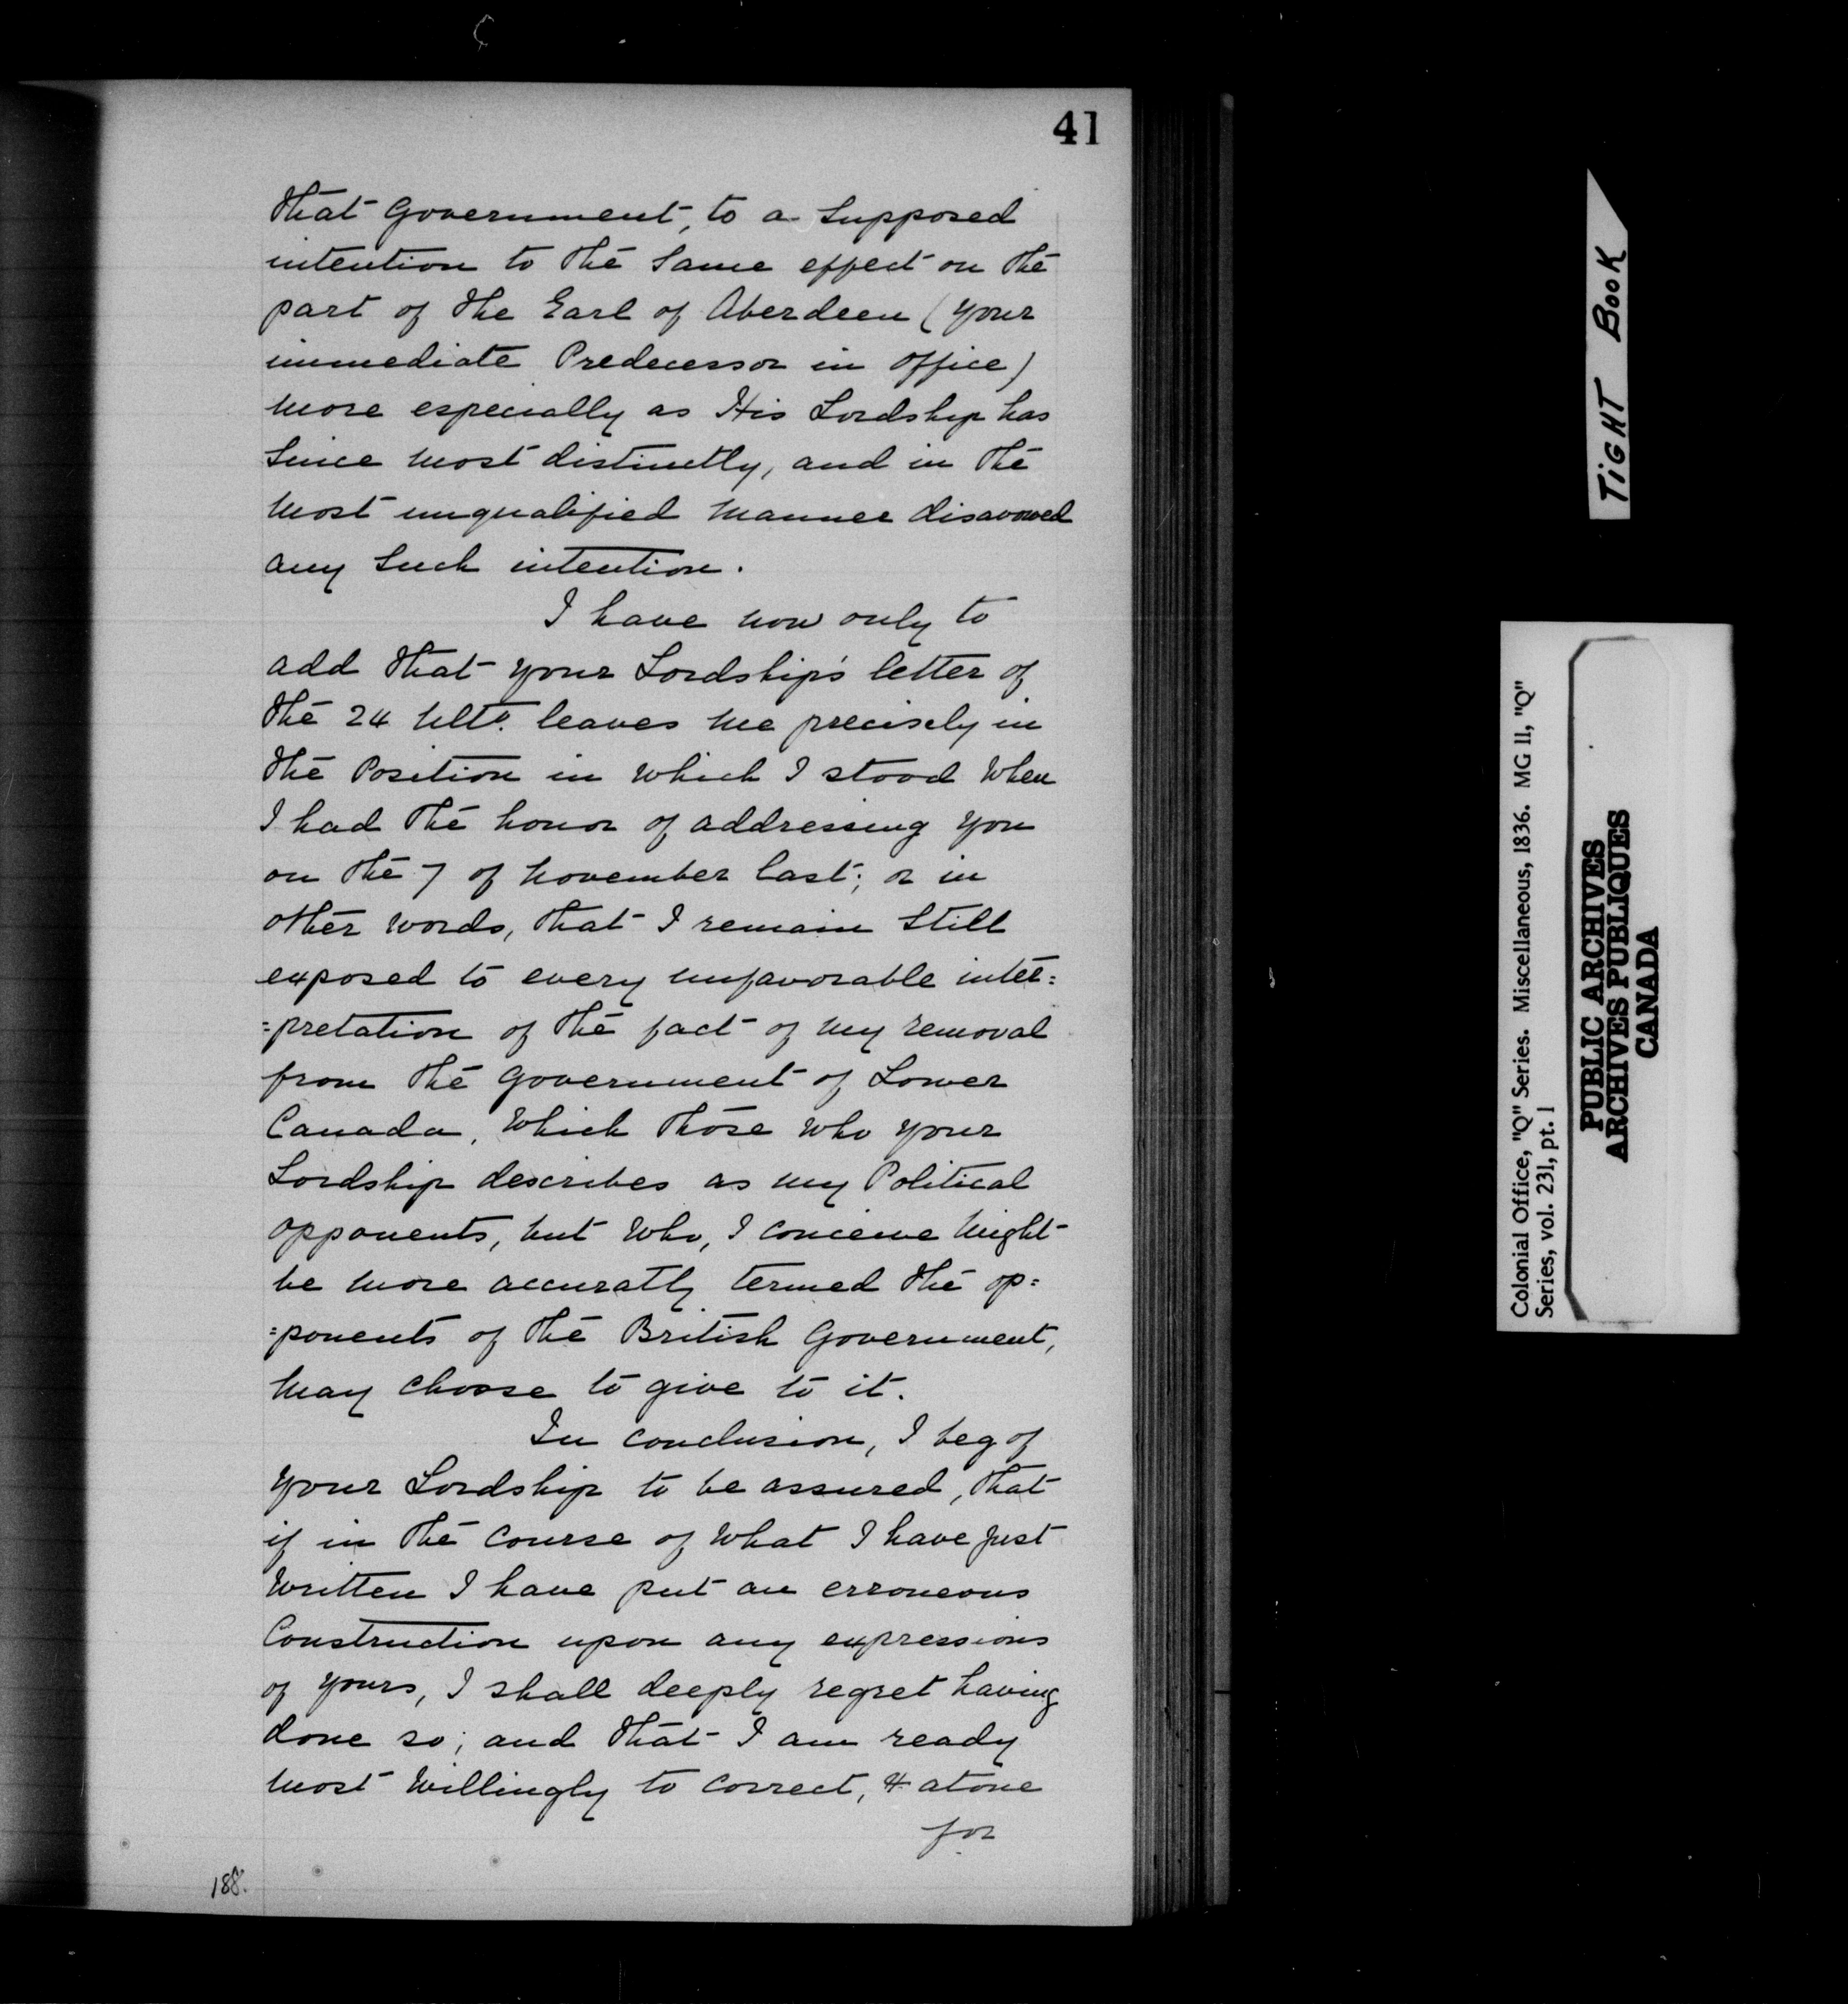 41
that Government, to a supposed
intention to the same effect on the
part of the Earl of Aberdeen (your
immediate Predecessor in office)
more especially as His Lordship has
since most distinctly, and in the
most unqualified manner disavowed
any such intention.
I have now only to
add that your Lordship's letter of
the 24 Ulto. leaves me precisely in
the Position in which I stood when
I had the honor of addressing you
on the 7 of November last; or in
other words, that I remain still
exposed to every unfavorable inter=
=pretation of the fact of my removal
from the Government of Lower
Canada, which those who your
Lordship describes as my Political
opponents, but who, I conceive might
be more accuratly termed the op=
=ponents of the British Government,
may choose to give to it.
In conclusion, I beg of
your Lordship to be assured, that
if in the course of what I have just
written I have put an erroneous
Construction upon any expressions
of yours, I shall deeply regret having
done so; and that I am ready
most willingly to correct, & atone
for
188.
TIGHT BOOK
Colonial Office, "Q" Series. Miscellaneous, 1836. MG 11, "Q"
Series, vol. 231, pt. 1
PUBLIC ARCHIVES
ARCHIVES PUBLIQUES
CANADA